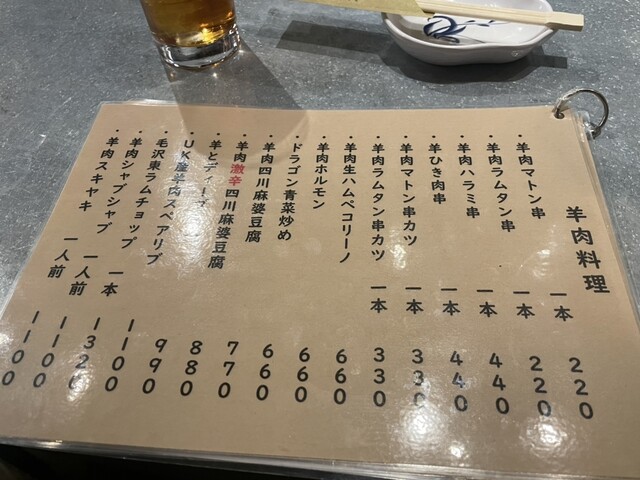 羊肉料理
・羊肉マトン串 一本 220
・羊肉ラムタン串 一本 220
・羊肉ハラミ串 一本 440
・羊ひき肉串 一本 440
・羊肉マトン串カツ 一本 330
・羊肉ラムタン串カツ 一本 330
・羊肉生ハムペコリーノ 660
・羊肉ホルモン 660
・ドラゴン青菜炒め 660
・羊肉四川麻婆豆腐 770
・羊肉激辛四川麻婆豆腐 880
・羊と 990
・UK産羊肉スペアリブ 1100
・毛沢東ラムチョップ 一本 1320
・羊肉シャブシャブ 一人前 1100
・羊肉スキヤキ 一人前 1100